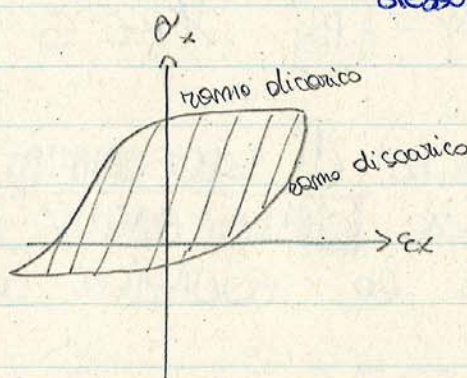 stesso
σx
ramo di carico
ramo di scarico
εx